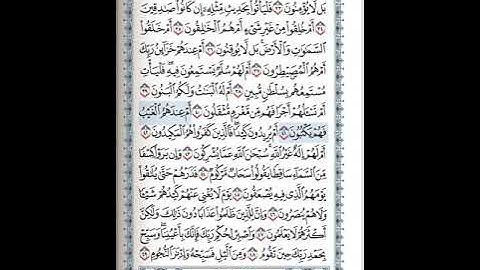 بَل لَّا يُؤْمِنُونَ ٣٣ فَلْيَأْتُوا۟ بِحَدِيثٍ مِّثْلِهِۦٓ إِن كَانُوا۟ صَـٰدِقِينَ
٣٤ أَمْ خُلِقُوا۟ مِنْ غَيْرِ شَىْءٍ أَمْ هُمُ ٱلْخَـٰلِقُونَ ٣٥ أَمْ خَلَقُوا۟
ٱلسَّمَـٰوَٰتِ وَٱلْأَرْضَ بَل لَّا يُوقِنُونَ ٣٦ أَمْ عِندَهُمْ خَزَآئِنُ رَبِّكَ
أَمْ هُمُ ٱلْمُصَۣيْطِرُونَ ٣٧ أَمْ لَهُمْ سُلَّمٌ يَسْتَمِعُونَ فِيهِ فَلْيَأْتِ
مُسْتَمِعُهُم بِسُلْطَـٰنٍ مُّبِينٍ ٣٨ أَمْ لَهُ ٱلْبَنَـٰتُ وَلَكُمُ ٱلْبَنُونَ ٣٩
أَمْ تَسْـَٔلُهُمْ أَجْرًا فَهُم مِّن مَّغْرَمٍ مُّثْقَلُونَ ٤٠ أَمْ عِندَهُمُ ٱلْغَيْبُ
فَهُمْ يَكْتُبُونَ ٤١ أَمْ يُرِيدُونَ كَيْدًا فَٱلَّذِينَ كَفَرُوا۟ هُمُ ٱلْمَكِيدُونَ ٤٢
أَمْ لَهُمْ إِلَـٰهٌ غَيْرُ ٱللَّهِ سُبْحَـٰنَ ٱللَّهِ عَمَّا يُشْرِكُونَ ٤٣ وَإِن يَرَوْا۟ كِسْفًا
مِّنَ ٱلسَّمَآءِ سَاقِطًا يَقُولُوا۟ سَحَابٌ مَّرْكُومٌ ٤٤ فَذَرْهُمْ حَتَّىٰ يُلَـٰقُوا۟
يَوْمَهُمُ ٱلَّذِى فِيهِ يُصْعَقُونَ ٤٥ يَوْمَ لَا يُغْنِى عَنْهُمْ كَيْدُهُمْ شَيْـًٔا
وَلَا هُمْ يُنصَرُونَ ٤٦ وَإِنَّ لِلَّذِينَ ظَلَمُوا۟ عَذَابًا دُونَ ذَٰلِكَ وَلَـٰكِنَّ
أَكْثَرَهُمْ لَا يَعْلَمُونَ ٤٧ وَٱصْبِرْ لِحُكْمِ رَبِّكَ فَإِنَّكَ بِأَعْيُنِنَا وَسَبِّحْ
بِحَمْدِ رَبِّكَ حِينَ تَقُومُ ٤٨ وَمِنَ ٱلَّيْلِ فَسَبِّحْهُ وَإِدْبَـٰرَ ٱلنُّجُومِ ٤٩